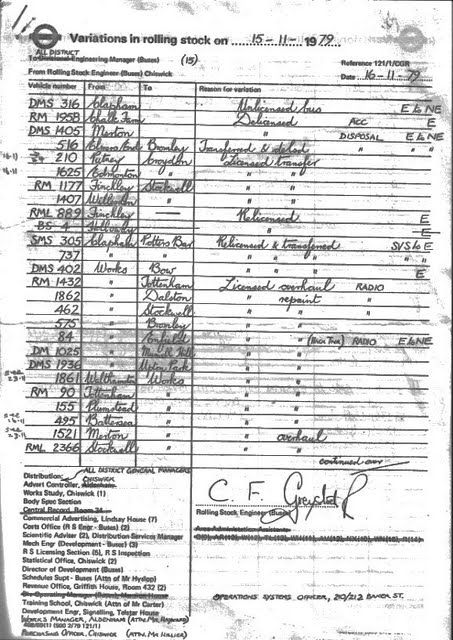 Variations in rolling stock on 15-11-1979
ALL DISTRICT
To Divisional Engineering Manager (Buses) (15)
Reference 121/1/CGR
From Rolling Stock Engineer (Buses) Chiswick
Date 16-11-79
Vehicle number From To Reason for variation
DMS 316 Clapham Unlicensed bus E to NE
RM 1958 Chalk Farm Delicensed ACC E
DMS 1405 Merton " DISPOSAL E to NE
516 Elmers End Bromley Transferred & deltd
16-11 210 Putney Croydon Licensed transfer
16-11 1625 Edmonton " " "
RM 1177 Finchley Stockwell " "
1407 Willesden " " "
RML 889 Finchley — Relicensed E
BS 4 Holloway " E
SMS 305 Clapham Potters Bar Relicensed & transferred SVS to E
737 " " " "
DMS 402 Works Bow " E
RM 1432 " Tottenham Licensed overhaul RADIO
1862 " Dalston " repaint "
462 " Stockwell " " "
575 " Bromley " "
84 " Enfield " " RADIO E to NE
DM 1025 " Muswell Hill " "
DMS 1936 " Upton Park " "
23-11 1861 Walthamstow Works " "
RM 90 Tottenham " " "
155 Plumstead " " "
16-11 495 Battersea " " "
23-11 1521 Merton " " overhaul
RML 2366 Stockwell " " "
continued over
Distribution: ALL DISTRICT GENERAL MANAGERS
CHISWICK
Advert Controller, Aldenham
Works Study, Chiswick (1)
Body Spec Section
Central Record, Room 34
Commercial Advertising, Lindsay House (7)
Costs Office (R S Engr - Buses) (2)
Scientific Adviser (2), Distribution Services Manager
Mech Engr (Development - Buses) (3)
R S Licensing Section (5), R S Inspection
Statistical Office, Chiswick (2)
Director of Development (Buses)
Schedules Supt - Buses (Attn of Mr Hyslop)
Revenue Office, Griffith House, Room 432 (2)
Training School, Chiswick (Attn of Mr Carter)
Development Engr, Signalling, Telstar House
WORKS MANAGER, ALDENHAM
PURCHASING OFFICER, CHISWICK
C. F.
Rolling Stock Engineer (Buses)
Area Administration Assistants
OPERATIONS SYSTEMS OFFICER, 210/212 BAKER ST.